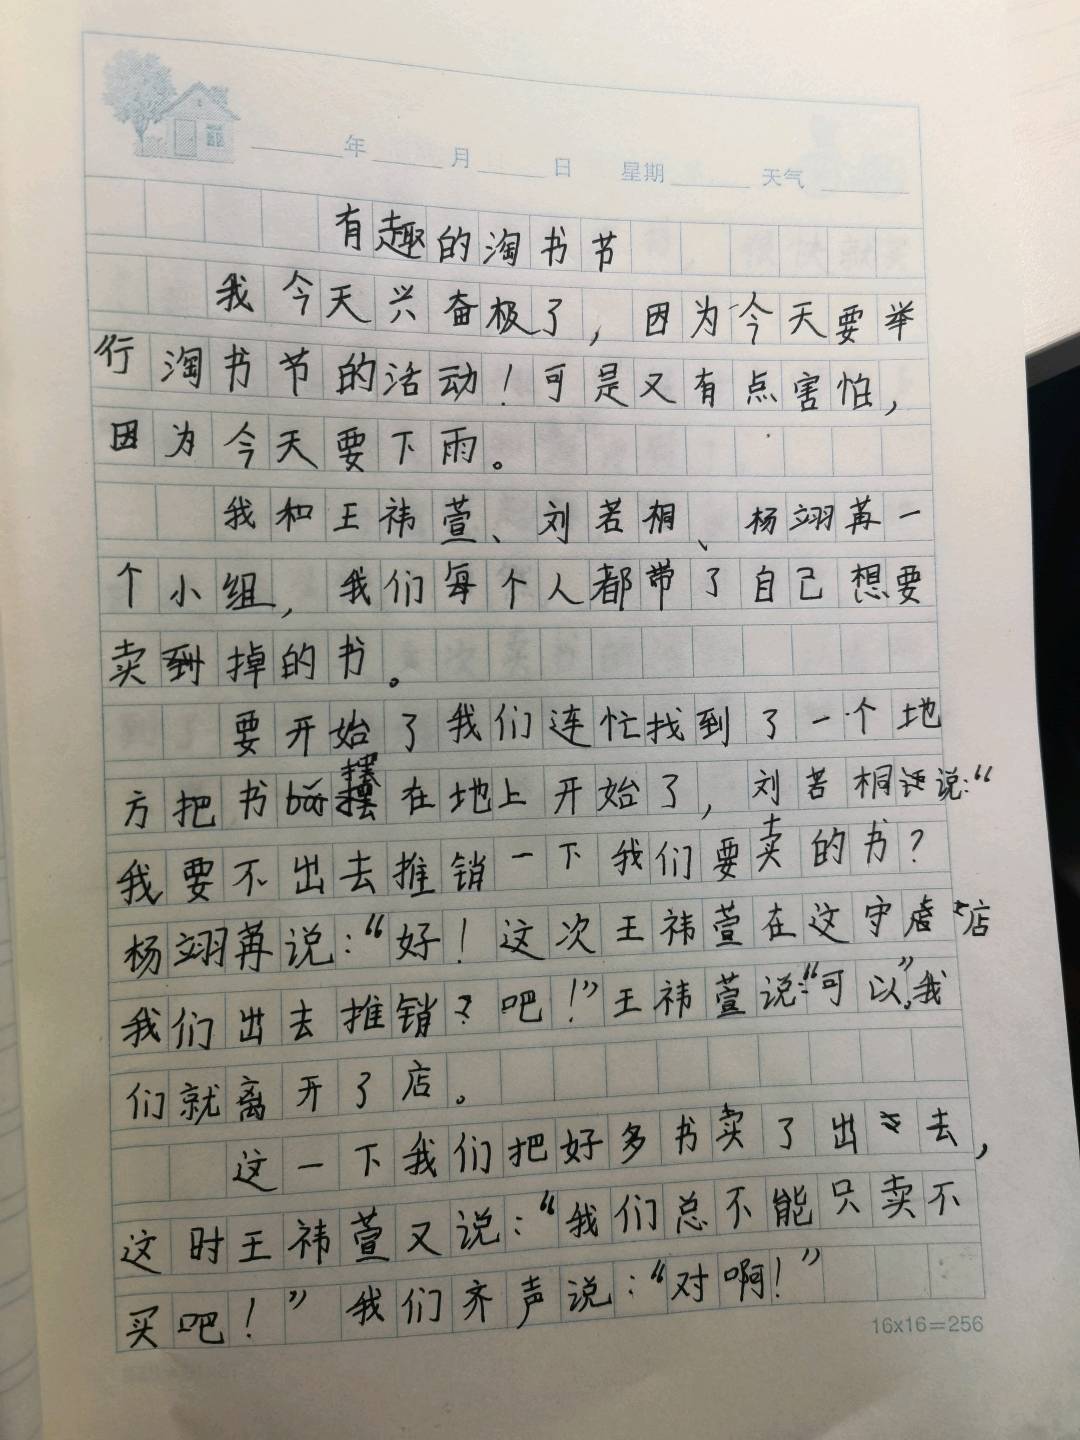 年 月 日 星期 天气
有趣的淘书节
我今天兴奋极了，因为今天要举
行淘书节的活动！可是又有点害怕，
因为今天要下雨。
我和王祎萱、刘若桐、杨翊苒一
个小组，我们每个人都带了自己想要
卖到掉的书。
要开始了我们连忙找到了一个地
方把书摆在地上开始了，刘若桐说：“
我要不出去推销一下我们要卖的书？
杨翊苒说：“好！这次王祎萱在这守店
我们出去推销？吧！”王祎萱说：“可以”，我
们就离开了店。
这一下我们把好多书卖了出去，
这时王祎萱又说：“我们总不能只卖不
买吧！”我们齐声说：“对啊！”
16x16=256